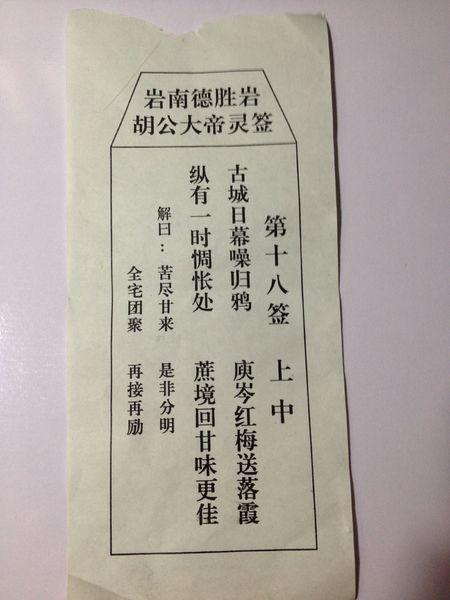 岩南德胜岩
胡公大帝灵签
第十八签 上中
古城日幕噪归鸦 庾岑红梅送落霞
纵有一时惆怅处 蔗境回甘味更佳
解曰：苦尽甘来 是非分明
全宅团聚 再接再励